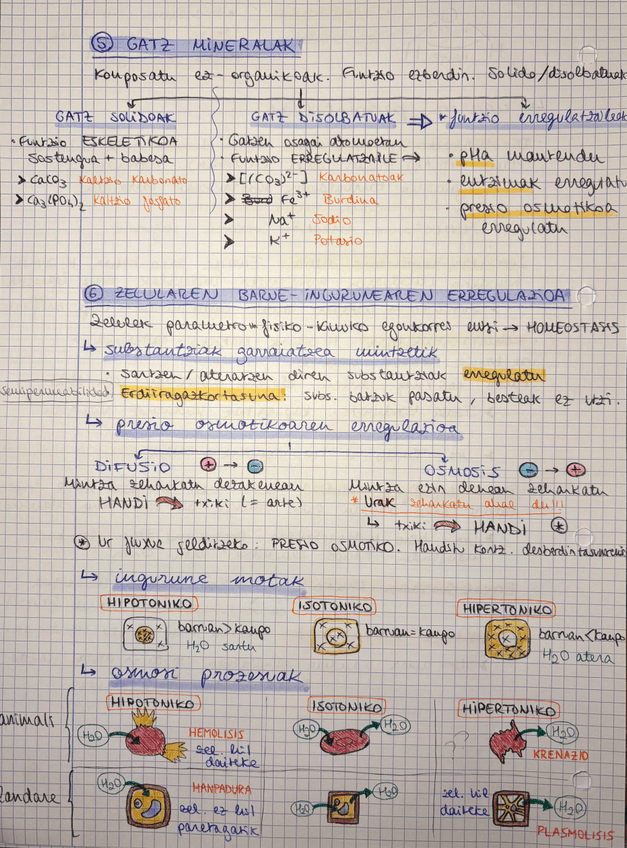 ⑤ GATZ MINERALAK
Konposatu ez-organikoak. Funtzio ezberdin. Solido/disolbatuak
GATZ SOLIDOAK
• Funtzio ESKELETIKOA
Sostengua + babesa
➤ CaCO3 Kaltzio Karbonato
➤ Ca3(PO4)2 Kaltzio fosfato
GATZ DISOLBATUAK ⇒ * funtzio erregulatzaileak
• Gatzen osagai atomoetan
• Funtzio ERREGULATZAILE →
➤ [(CO3)2-] Karbonatoak
➤ Fe3+ Burdina
➤ Na+ Sodio
➤ K+ Potasio
• pHa mantendu
• entzimak erregulatu
• presio osmotikoa
erregulatu
⑥ ZELULAREN BARNE-INGURUNEAREN ERREGULAZIOA
Zelulek parametro fisiko-kimiko egonkorres eutsi → HOMEOSTASIS
↳ substantziak garraiatzea mintzetik
• Sartzen/ateratzen diren substantziak erregulatu
semipermeabilidad
Erdiiragazkortasuna: subs. batzuk pasatu, besteak ez utzi.
↳ presio osmotikoaren erregulazioa
DIFUSIO + → -
Mintza zeharkatu dezakenean
HANDI → txiki (= arte)
OSMOSIS - → +
Mintza ezin denean zeharkatu
* Urak zeharkatu ahal du!!!
↳ txiki → HANDI *
* Ur fluxua gelditzeko: PRESIO OSMOTIKO. Handik kontz. desberdintasunarekin
↳ ingurune motak
HIPOTONIKO
barruan>kanpo
H2O sartu
ISOTONIKO
barruan=kanpo
HIPERTONIKO
barruan<kanpo
H2O atera
↳ osmosi prozesuak
animali
HIPOTONIKO
H2O
HEMOLISIS
zel. hil
daiteke
ISOTONIKO
H2O
H2O
HIPERTONIKO
H2O
KRENAZIO
landare
H2O
HANPADURA
zel. ez hil
paretagatik
H2O
H2O
zel. hil
daiteke
H2O
PLASMOLISIS